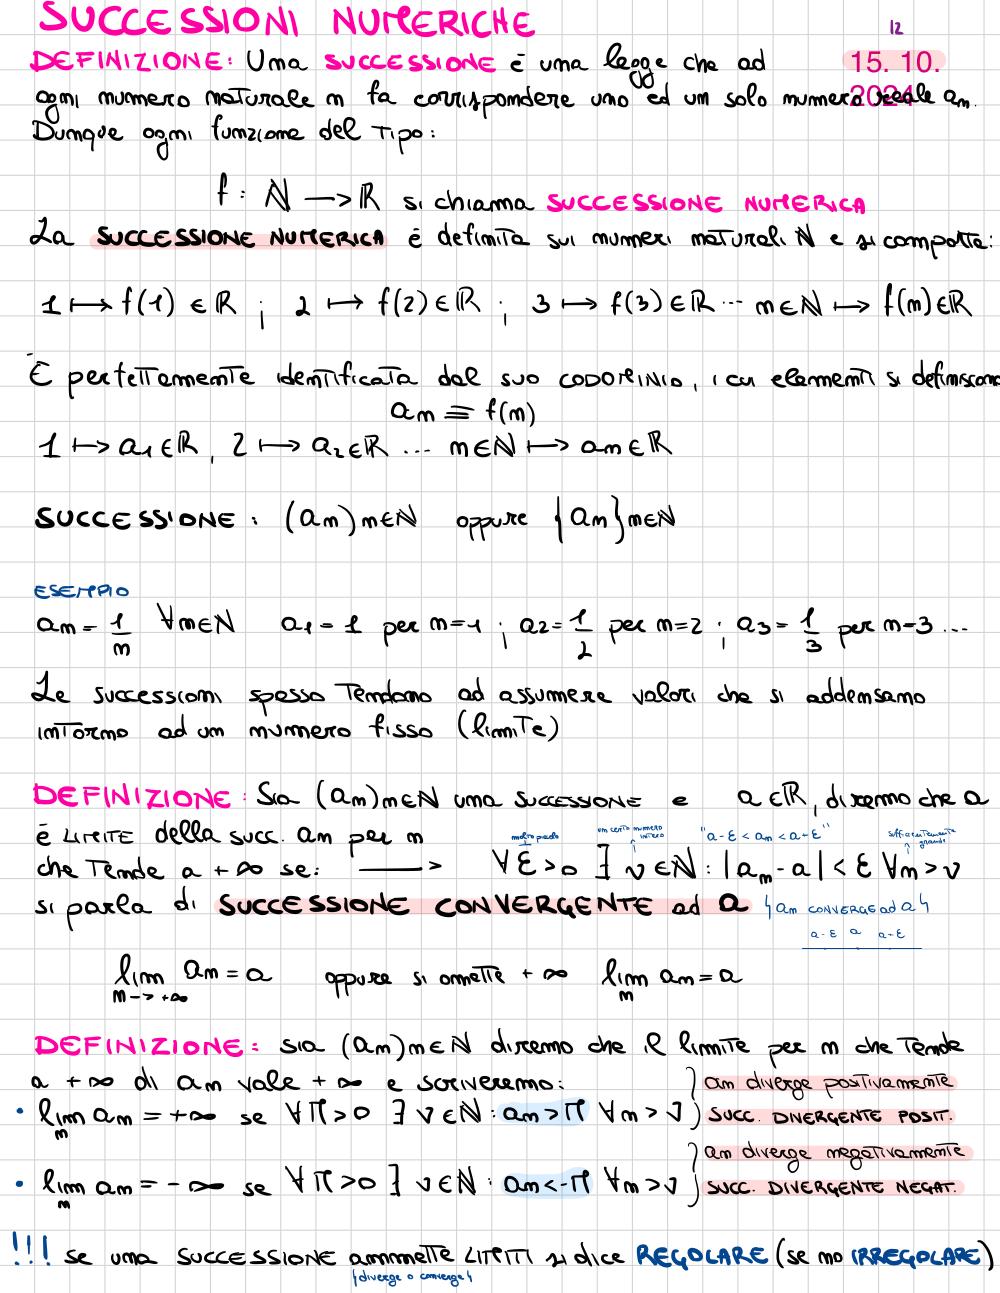 SUCCESSIONI NUMERICHE
12
DEFINIZIONE: Una SUCCESSIONE è una legge che ad
15. 10.
2024
ogni numero naturale n fa corrispondere uno ed un solo numero reale an.
Dunque ogni funzione del tipo:
f: ℕ —> ℝ si chiama SUCCESSIONE NUMERICA
La SUCCESSIONE NUMERICA è definita sui numeri naturali ℕ e si comporta:
1 ⟼ f(1) ∈ ℝ ; 2 ⟼ f(2) ∈ ℝ ; 3 ⟼ f(3) ∈ ℝ ... n∈ℕ ⟼ f(n)∈ℝ
È perfettamente identificata dal suo CODOMINIO, i cui elementi si definiscono
an ≡ f(n)
1 ⟼ a1∈ℝ, 2 ⟼ a2∈ℝ ... n∈ℕ ⟼ an∈ℝ
SUCCESSIONE: (an)n∈ℕ oppure {an}n∈ℕ
ESEMPIO
an = 1/n ∀n∈ℕ a1 = 1 per n=1 ; a2 = 1/2 per n=2 ; a3 = 1/3 per n=3 ...
Le successioni spesso tendono ad assumere valori che si addensano
intorno ad un numero fisso (limite)
DEFINIZIONE: Sia (an)n∈ℕ una SUCCESSIONE e a∈ℝ, diremo che a
è LIMITE della succ. an per n
molto piccolo un certo numero intero "a-ε < an < a-ε" sufficientemente grande
che tende a +∞ se: ——> ∀ε>0 ∃ ν∈ℕ: |an-a|<ε ∀n>ν
si parla di SUCCESSIONE CONVERGENTE ad a ϟan CONVERGE ad aϟ
a-ε a a-ε
lim n->+∞ an = a oppure si omette +∞ lim n an = a
DEFINIZIONE: sia (an)n∈ℕ diremo che il limite per n che tende
a +∞ di an vale +∞ e scriveremo: } an diverge positivamente
• lim n an = +∞ se ∀M>0 ∃ ν∈ℕ: an>M ∀n>ν } SUCC. DIVERGENTE POSIT.
} an diverge negativamente
• lim n an = -∞ se ∀M>0 ∃ ν∈ℕ: an<-M ∀n>ν } SUCC. DIVERGENTE NEGAT.
!!! se una SUCCESSIONE ammette LIMITI si dice REGOLARE (se no IRREGOLARE)
ϟdiverge o convergeϟ